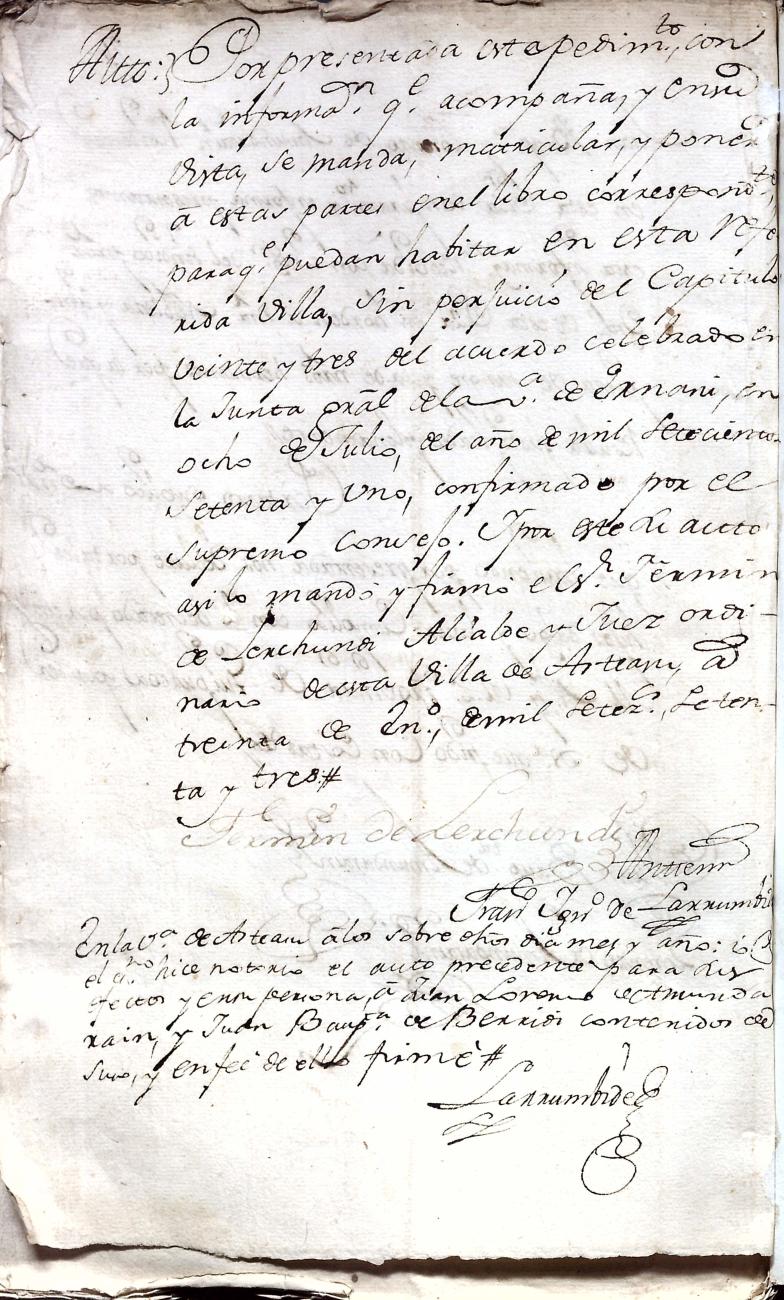 Autto:} Por presentada este pedim.to, con
la informa.on q.e acompaña, y en su
vista, se manda, matricular, y poner
â estas partes en el libro correspond.te,
para q.e puedan habitar en esta refe
rida Villa, sin perjuicio del Capitulo
veinte y tres del acuerdo celebrado en
la Junta gral de la v.a de Ernani, en
ocho de Julio, del año de mil setecientos
setenta y uno, confirmado por el
supremo Consejo. Y por este su auto
asi lo mandó y firmó el S.r Fermin
de Lerchundi Alcalde y Juez ordi-
nario de esta Villa de Asteasu, â
treinta de En.o, de mil setez.s, seten-
ta y tres#
Fermin de Lerchundi
Antemi
Fran.co Ign.o de Larrumbide
En la v.a de Asteasu â los sobre dhos dia mes y año: io
el s.no hice notorio el auto precedente para sus
efectos y en su persona, â Juan Lorenzo de Amunda
rain, y Juan Baup.ta de Berridi contenidos de
suso, y en feé de ello firmé#
Larrumbide